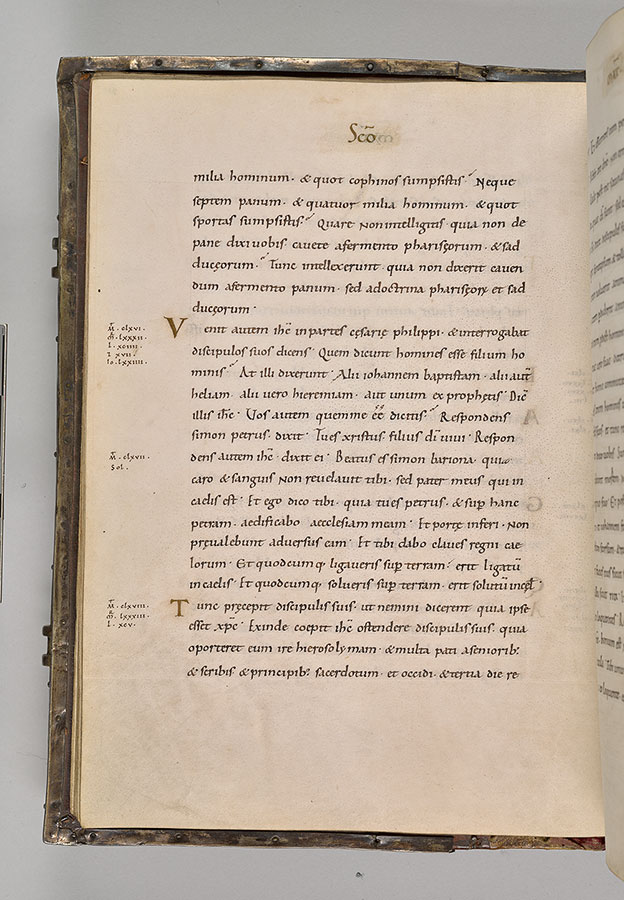 Scō
milia hominum· & quot cophinos sumpsistis· Neque
septem panum· & quatuor milia hominum· & quot
sportas sumpsistis· Quare non intelligitis quia non de
pane dixi uobis cauete afermento pharisęorum· & sad
ducęorum· Tunc intellexerunt· quia non dixerit cauen
dum afermento panum· sed adoctrina pharisęorꝝ et sad
ducęorum·
M̄· clxvi·
m̄· lxxxii
l· xciiii·
Venit autem ihc̄ inpartes cęsarię philippi· & interrogabat
Io· lxxiiii·
discipulos suos dicens· Quem dicunt homines esse filium ho
minis· At illi dixerunt· Alii iohannem baptistam· alii aut̄
heliam· alii uero hieremiam· aut unum ex prophetis· Dic̄
illis ihc̄· Uos autem quemme eē dicitis· Respondens
simon petrus· dixit· Tues xristus filius dī uiui· Respon
M̄· clxvii·
Sol·
dens autem ihc̄· dixit ei· Beatus es simon bariona· quia
caro & sanguis non reuelauit tibi· sed pater meus qui in
caelis est· Et ego dico tibi· quia tues petrus· & sup̄ hanc
petram· aedificabo aecclesiam meam· Et portę inferi· non
pręualebunt aduersus eam· Et tibi dabo claues regni cae
lorum· Et quodcumq; ligaueris sup̄ terram· erit ligatū
in caelis· Et quodcumq; solueris sup̄ terram· erit solutū in cęl̄·
M̄· clxviii·
m̄· lxxxiii·
l· xcv·
Tunc pręcepit discipulis suis· ut nemini dicerent quia ipse
esset xpc̄· Exinde coepit ihc̄ ostendere discipulis suis· quia
oporteret eum ire hierosolymam· & multa pati asenioribꝫ
& scribis & principibꝫ sacerdotum· et occidi· & tertia die re